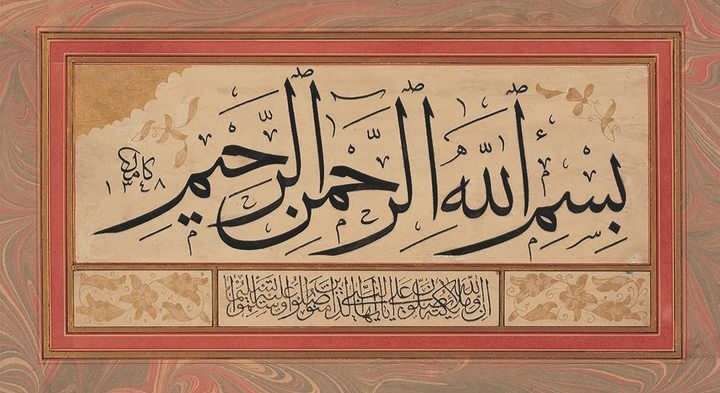 بِسْمِ اللّٰهِ الرَّحْمٰنِ الرَّحِيمِ
كامل
١٣٤٨
ان الله وملائكته يصلون على النبي يا ايها الذين امنوا صلوا عليه وسلموا تسليما